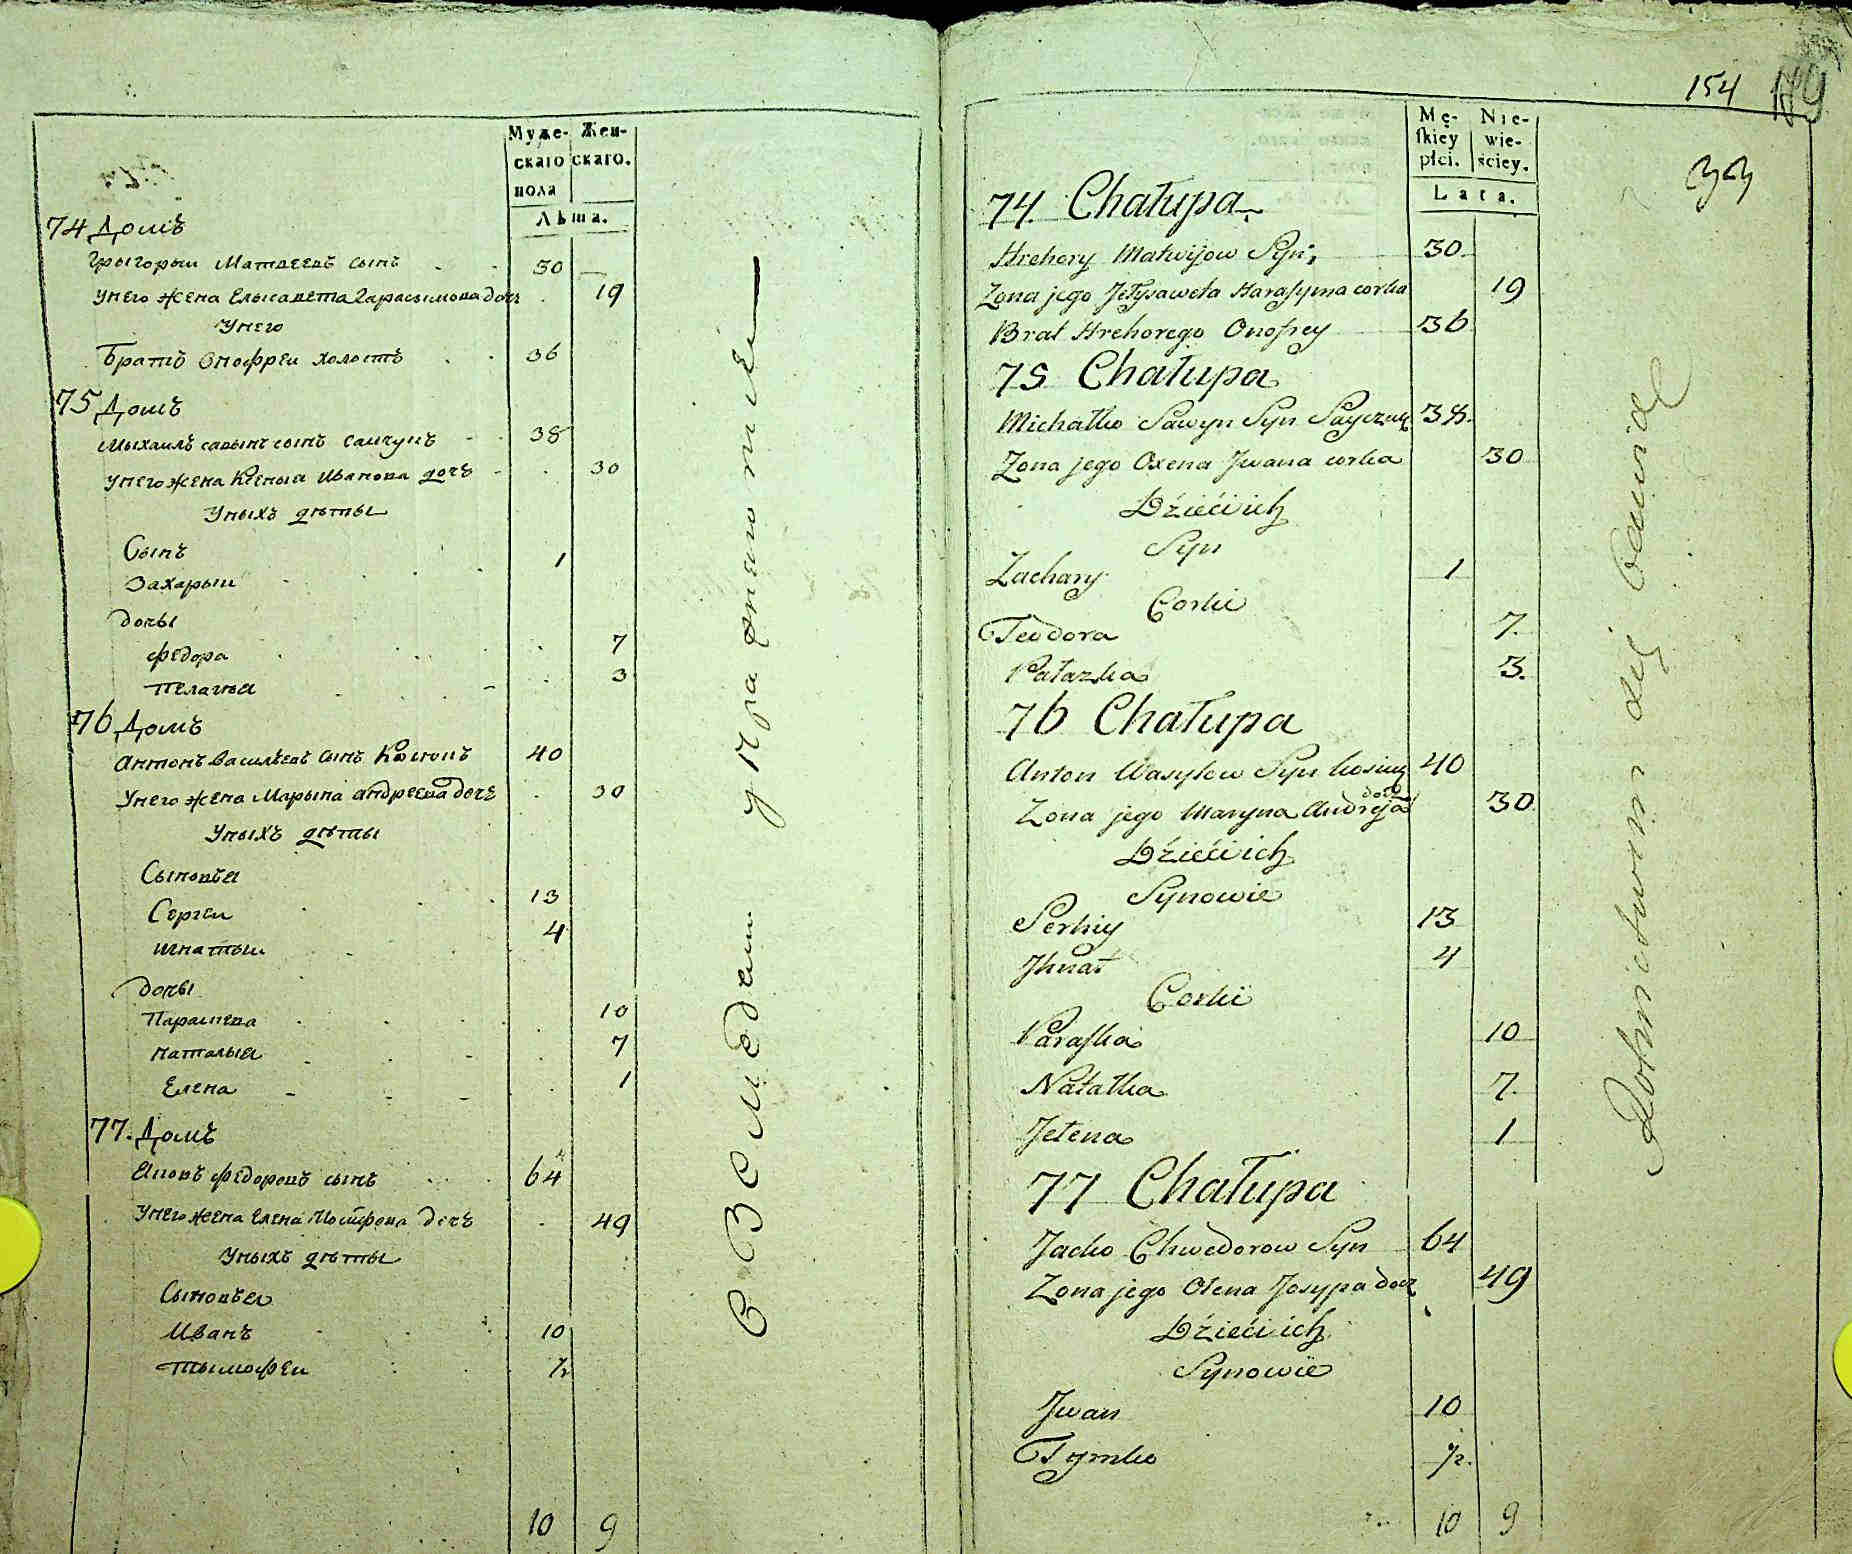 Муже- Жен-
скаго скаго.
пола
Лѣта.
74 Домъ
Григорыи Матвеевъ сынъ 30
Унего жена Елысавета Гарасымова дочь 19
Унего
Братъ Онофреи холостъ 36
75 Домъ
Мыхаилъ савынъ сынъ 38
Унего жена Ксеныя Иванова дочъ 30
Уныхъ дѣты
Сынъ
Захарыи 1
дочы
Федора 7
Пелагея 3
76 Домъ
Антонъ Васильевъ сынъ 40
Унего жена Марына андреева дочъ 30
Уныхъ дѣты
Сыновья
Сергеи 13
Игнатыи 4
дочы
Параскева 10
Наталыя 7
Елена 1
77. Домъ
Федоровъ сынъ 64
Унего жена Елена дочъ 49
Уныхъ дѣты
Сыновья
Иванъ 10
Тымофеи ½
10 9
154
33
Mę- Nie-
skiey wie-
płci. ściey.
Lata.
74. Chałupa
Hrehory Matwijow Syn 30
Zona jego Jełysaweta Harasyma corka 19
Brat Hrehorego Onofrey 36
75 Chałupa
Michałko Sawyn Syn 38.
Zona jego Oxena Jwana corka 30
Dźieći ich
Syn
Zachary 1
Corki
Teodora 7.
Pałazka 3.
76 Chałupa
Anton Wasylow Syn 40
Zona jego Maryna Andreja docz 30
Dźieći ich
Synowie
Serhiy 13
Jhnat 4
Corki
Paraska 10
Natałka 7.
Jełena 1
77 Chałupa
Jacko Chwedorow Syn 64
Zona jego Olena Josypa docz 49
Dźieći ich
Synowie
Jwan 10
Tymko ½.
10 9
Rolnictwem się bawią